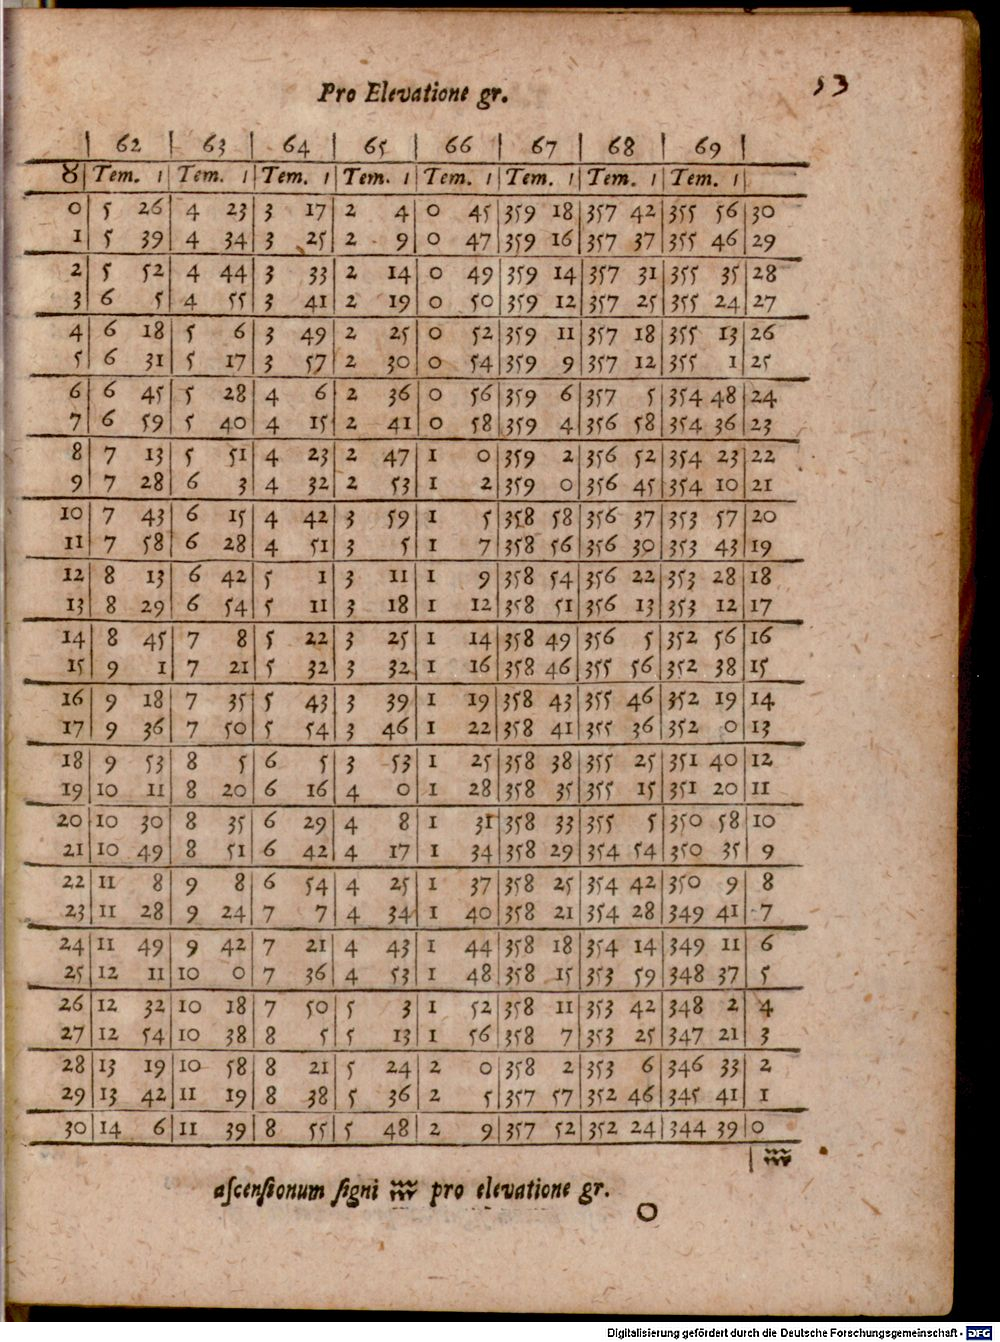 Pro Elevatione gr. 53
62 63 64 65 66 67 68 69
♉ Tem. ı Tem. ı Tem. ı Tem. ı Tem. ı Tem. ı Tem. ı Tem. ı
0 5 26 4 23 3 17 2 4 0 45 359 18 357 42 355 56 30
1 5 39 4 34 3 25 2 9 0 47 359 16 357 37 355 46 29
2 5 52 4 44 3 33 2 14 0 49 359 14 357 31 355 35 28
3 6 5 4 55 3 41 2 19 0 50 359 12 357 25 355 24 27
4 6 18 5 6 3 49 2 25 0 52 359 11 357 18 355 13 26
5 6 31 5 17 3 57 2 30 0 54 359 9 357 12 355 1 25
6 6 45 5 28 4 6 2 36 0 56 359 6 357 5 354 48 24
7 6 59 5 40 4 15 2 41 0 58 359 4 356 58 354 36 23
8 7 13 5 51 4 23 2 47 1 0 359 2 356 52 354 23 22
9 7 28 6 3 4 32 2 53 1 2 359 0 356 45 354 10 21
10 7 43 6 15 4 42 3 59 1 5 358 58 356 37 353 57 20
11 7 58 6 28 4 51 3 5 1 7 358 56 356 30 353 43 19
12 8 13 6 42 5 1 3 11 1 9 358 54 356 22 353 28 18
13 8 29 6 54 5 11 3 18 1 12 358 51 356 13 353 12 17
14 8 45 7 8 5 22 3 25 1 14 358 49 356 5 352 56 16
15 9 1 7 21 5 32 3 32 1 16 358 46 355 56 352 38 15
16 9 18 7 35 5 43 3 39 1 19 358 43 355 46 352 19 14
17 9 36 7 50 5 54 3 46 1 22 358 41 355 36 352 0 13
18 9 53 8 5 6 5 3 53 1 25 358 38 355 25 351 40 12
19 10 11 8 20 6 16 4 0 1 28 358 35 355 15 351 20 11
20 10 30 8 35 6 29 4 8 1 31 358 33 355 5 350 58 10
21 10 49 8 51 6 42 4 17 1 34 358 29 354 54 350 35 9
22 11 8 9 8 6 54 4 25 1 37 358 25 354 42 350 9 8
23 11 28 9 24 7 7 4 34 1 40 358 21 354 28 349 41 7
24 11 49 9 42 7 21 4 43 1 44 358 18 354 14 349 11 6
25 12 11 10 0 7 36 4 53 1 48 358 15 353 59 348 37 5
26 12 32 10 18 7 50 5 3 1 52 358 11 353 42 348 2 4
27 12 54 10 38 8 5 5 13 1 56 358 7 353 25 347 21 3
28 13 19 10 58 8 21 5 24 2 0 358 2 353 6 346 33 2
29 13 42 11 19 8 38 5 36 2 5 357 57 352 46 345 41 1
30 14 6 11 39 8 55 5 48 2 9 357 52 352 24 344 39 0
♒
aſcenſionum ſigni ♒ pro elevatione gr.
O
Digitalisierung gefördert durch die Deutsche Forschungsgemeinschaft - DFG